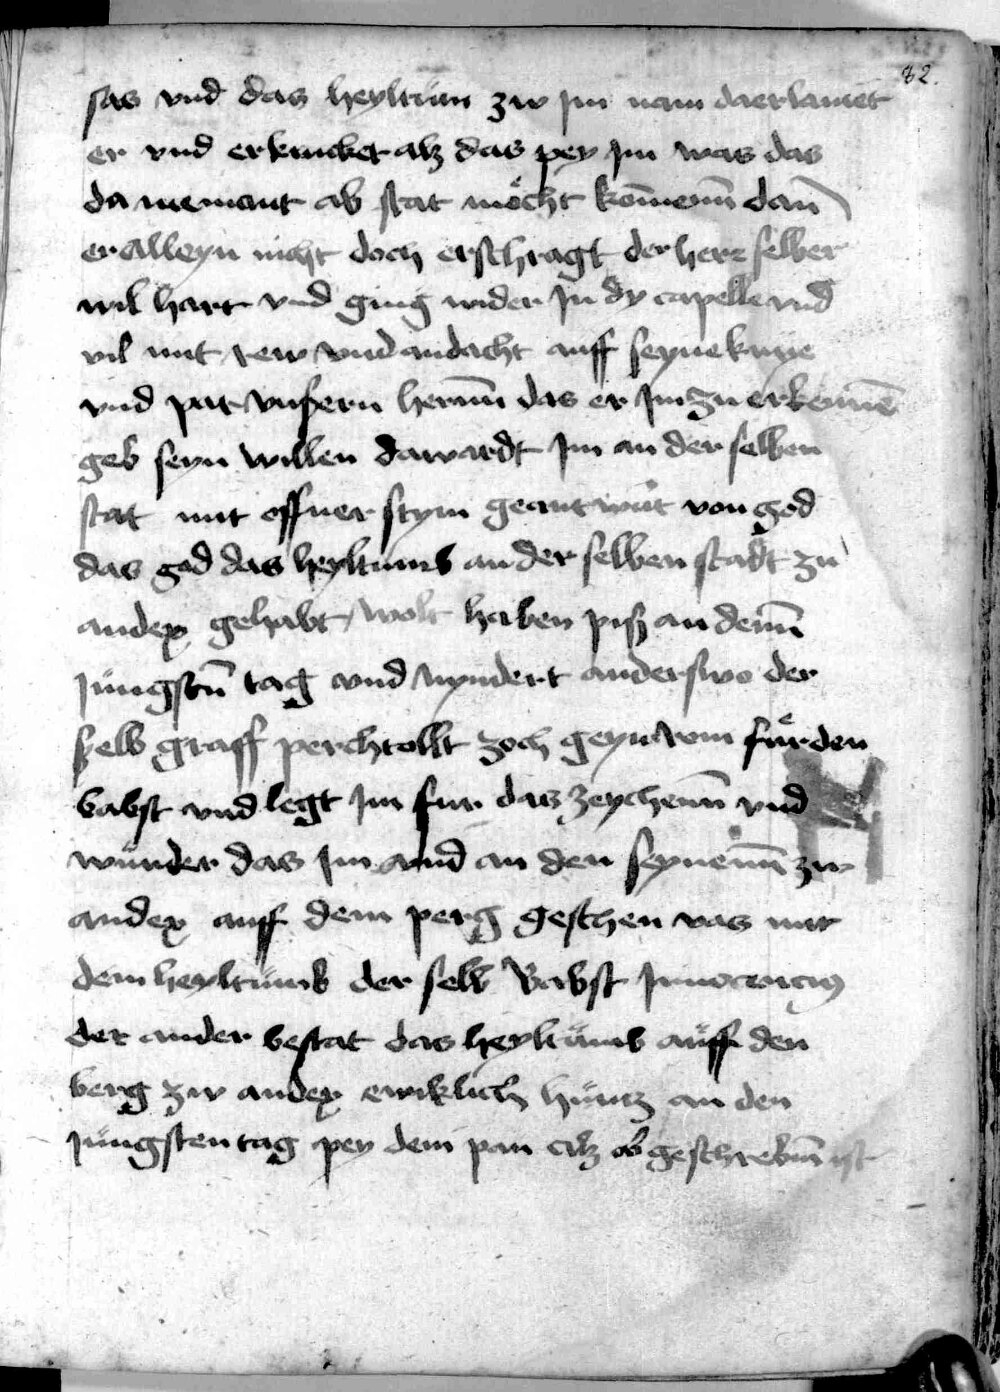 82.
sas vnd das heyltum zw im nam da erlamet
er vnd erkrucket alz das pey im was das
da niemant ab stat möcht kōmenn̄ dan̄
er alleyn nicht doch erschragt der herr selber
vil hart vnd ging wider In dy capelle vnd
vil mit rew vnd andacht auff seyne knye
vnd pat vnsern hernn̄ das er Im zu erkennē
geb seyn willen da wardt Im an der selben
stat mit offner stym geantwůt von god
das god das heyltumb an der selben stadt zu
andex gehabt wolt haben pisz an denn̄
Jungstn̄ tag vnd nyndert anderswo der
selb graff perchtollt zoch geyn rom fůr den
babst vnd legt Im fur das zeychenn̄ vnd
wunder das Im vnd an den seynenn̄ zw
andex auff dem perg geschen was mit
dem heyltumb der selb Babst Innocencius
der ander bestat das heyltumb auff den
berg zw andex ewiklich huntz an den
Jungsten tag pey dem pan alz ob geschrebnn̄ ist